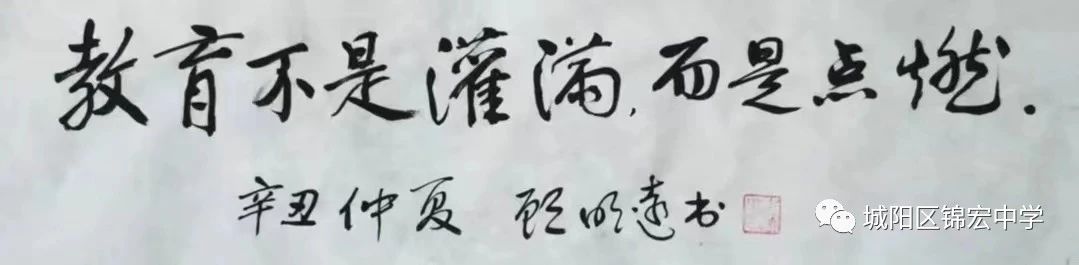 教育不是灌满,而是点燃.
辛丑仲夏 顾明远书
城阳区锦宏中学